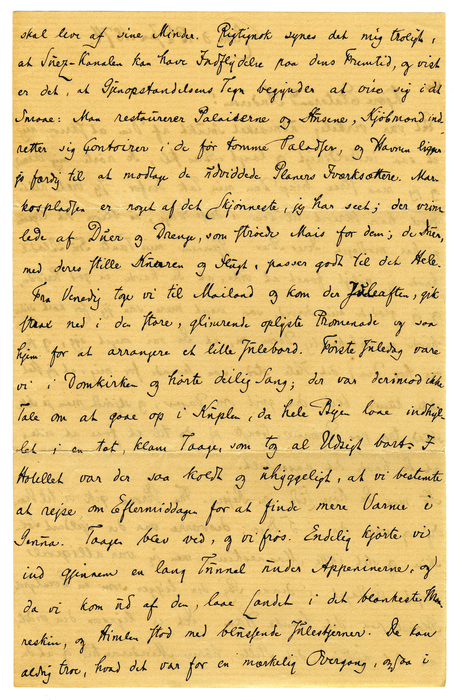 skal leve af sine Minder. Rigtignok synes det mig troligt,
at Suez-Kanalen kan have Indflydelse paa dens Fremtid, og vist
er det, at Gjenopstandelsens Tegn begynder at vise sig i det
Smaae: Man restaurerer Palaiserne og Husene, Kjöbmænd ind-
retter sig Contoirer i de för tomme Paladser, og Havnen ligger
færdig til at modtage de udviddede Planers Iværksættere. Mar-
kospladsen er noget af det Skjönneste, jeg har seet; der vrim-
lede af Duer og Drenge, som ströede Mais for dem; de Duer,
med deres stille Kurren og Flugt, passer godt til det Hele.
Fra Venedig toge vi til Mailand og kom der Juleaften, gik
strax ned i den store, glimrende oplyste Promenade og saa
hjem for at arrangere et lille Julebord. Förste Juledag vare
vi i Domkirken og hörte deilig Sang; der var derimod ikke
Tale om at gaae op i Kuplen, da hele Byen laae indhyl-
let i en tæt, klam Taage, som tog al Udsigt bort. I
Hotellet var der saa koldt og uhyggeligt, at vi bestemte
at rejse om Eftermiddagen for at finde mere Varme i
Genua. Taagen blev ved, og vi frös. Endelig kjörte vi
ind gjennem en lang Tunnel under Appeninerne, og
da vi kom ud af den, laae Landet i det blankeste Maa-
neskin, og Himlen stod med blussende Julestjerner. De kan
aldrig troe, hvad det var for en mærkelig Overgang, ogsaa i